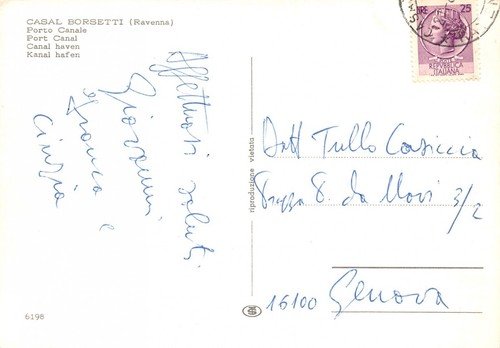 CASAL BORSETTI (Ravenna)
Porto Canale
Port Canal
Canal haven
Kanal hafen
LIRE 25
REPUBBLICA
ITALIANA
Affettuosi saluti
Giovanni
Franca e
Cinzia
riproduzione vietata
Dott Tullo Casiccia
Piazza
da Novi 3/2
16100 Genova
6198